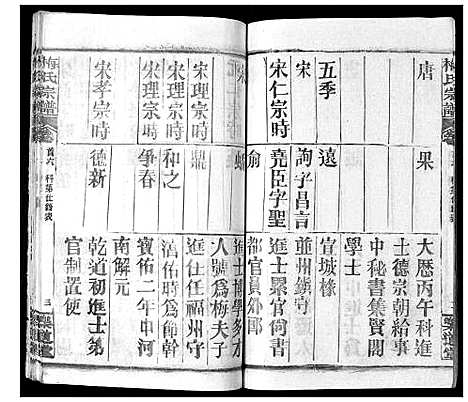 梅氏宗譜
唐
果
大歷丙午科進
士德宗朝給事
中秘書集賢閣
學士
五季
遠
宣城掾
詢子昌言
並州鎮守
宋仁宗時
堯臣字聖
俞
進士累官尚書
都官員外郎
進士博學多才
人號為梅夫子
宋理宗時
鼎
進仕任福州守
宋理宗時
和之
淳佑時為節幹
爭春
寶佑二年中河
南解元
宋孝宗時
德新
乾道初進士第
官制置使
梅氏宗譜
首六
科第仕籍表
三
樂道堂